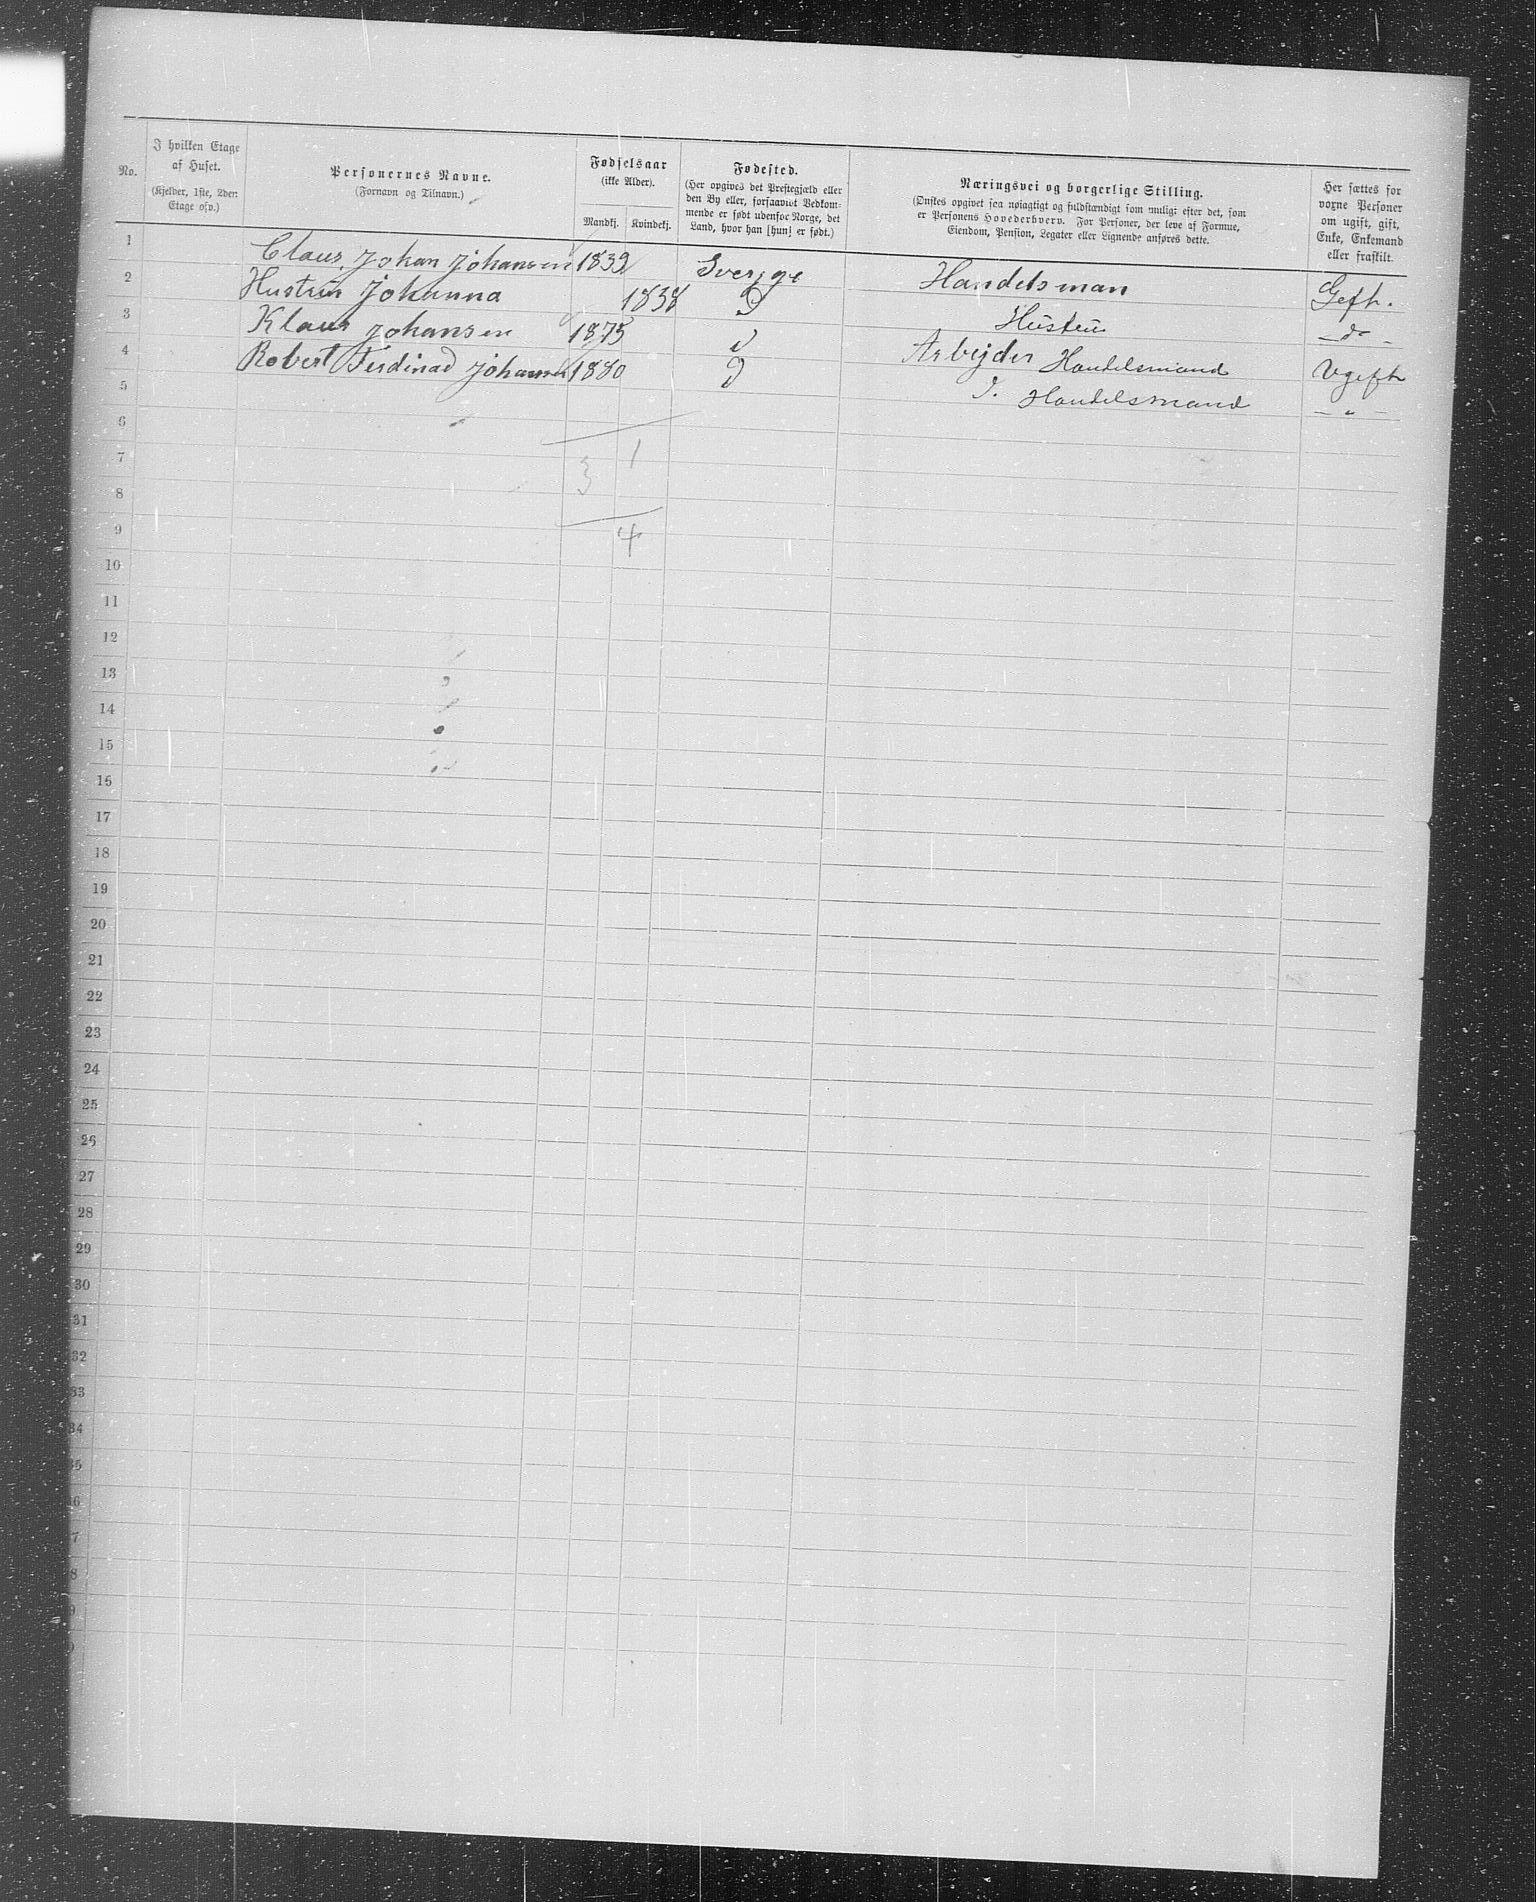 No.
I hvilken Etage
af Huset.
(Kjelder, 1ste, 2den
Etage osv.)
Personernes Navne.
(Fornavn og Tilnavn.)
Fødselsaar
(ikke Alder).
Mandkj. Kvindekj.
Fødested.
(Her opgives det Prestegjæld eller
den By eller, forsaavidt Vedkom-
mende er født udenfor Norge, det
Land, hvor han [hun] er født.)
Næringsvei og borgerlige Stilling.
(Ønskes opgivet saa nøiagtigt og fuldstændigt som muligt efter det, som
er Personens Hovederhverv. For Personer, der leve af Formue,
Eiendom, Pension, Legater eller Lignende anføres dette.
Her sættes for
voxne Personer
om ugift, gift,
Enke, Enkemand
eller fraskilt.
1 Claus Johan Johansen 1839 Sverige Handelsman Geft.
2 Hustru Johanna 1838 D Hustru - do -
3 Klaus Johansen 1875 Arbejder Handelsmand Ugeft
4 Robert Ferdinad Johansen 1880 Handelsmand - " -
5
6
7 3 1
8
9 4
10
11
12
13
14
15
16
17
18
19
20
21
22
23
24
25
26
27
28
29
30
31
32
33
34
35